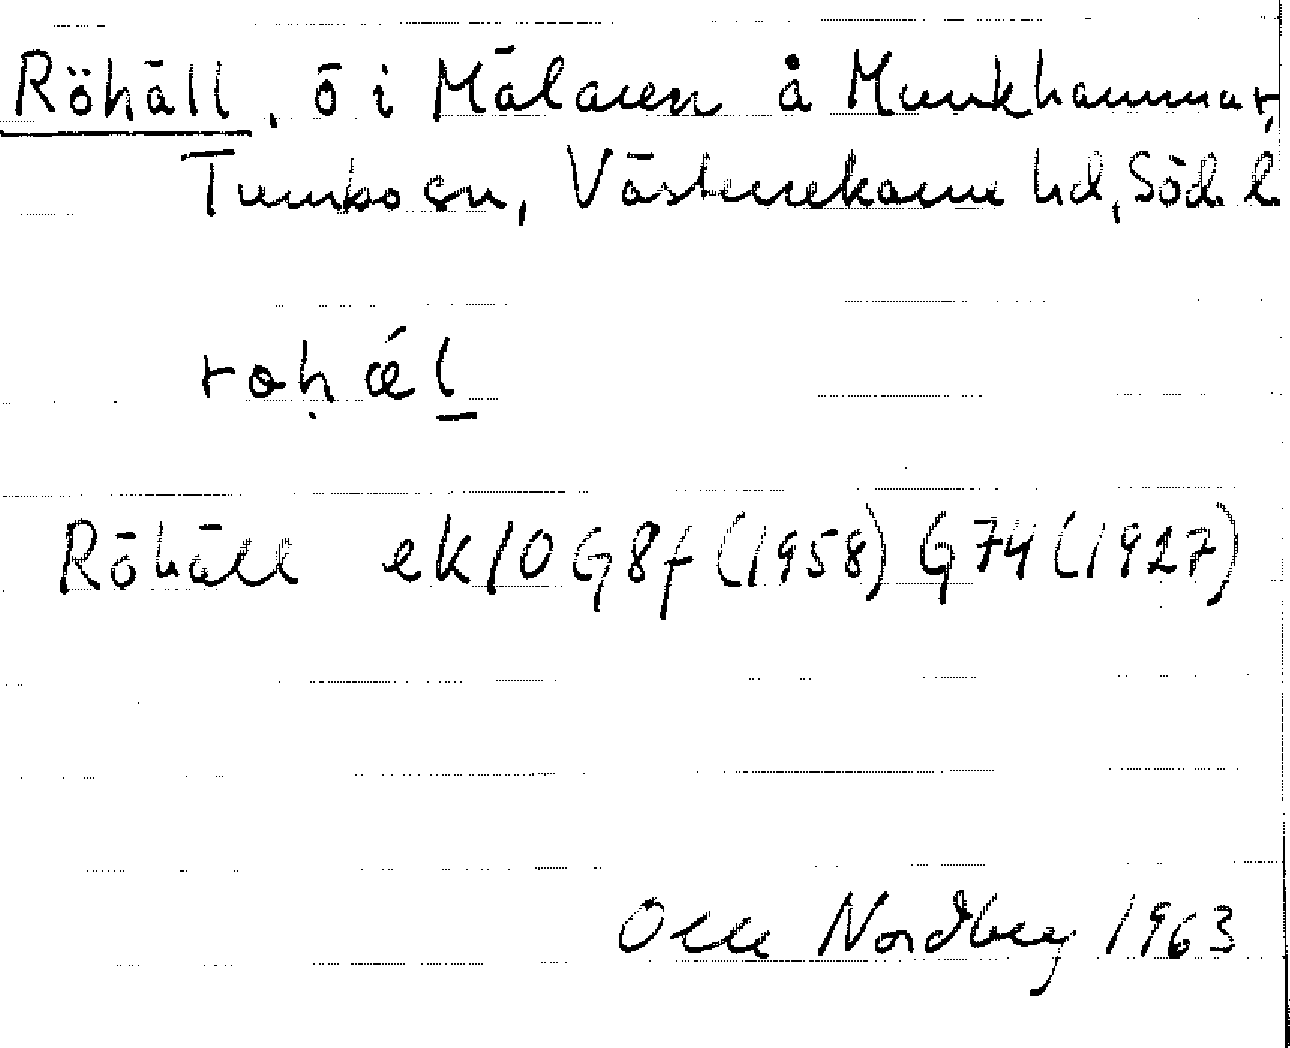 Röhäll, ö i Mälaren å Munkhammar,
Tumbo sn, Västerrekarne hd, Södl.
rohǽl
Röhäll ek 10 G 8f (1958) G 74 (1927)
Olle Nordberg 1963